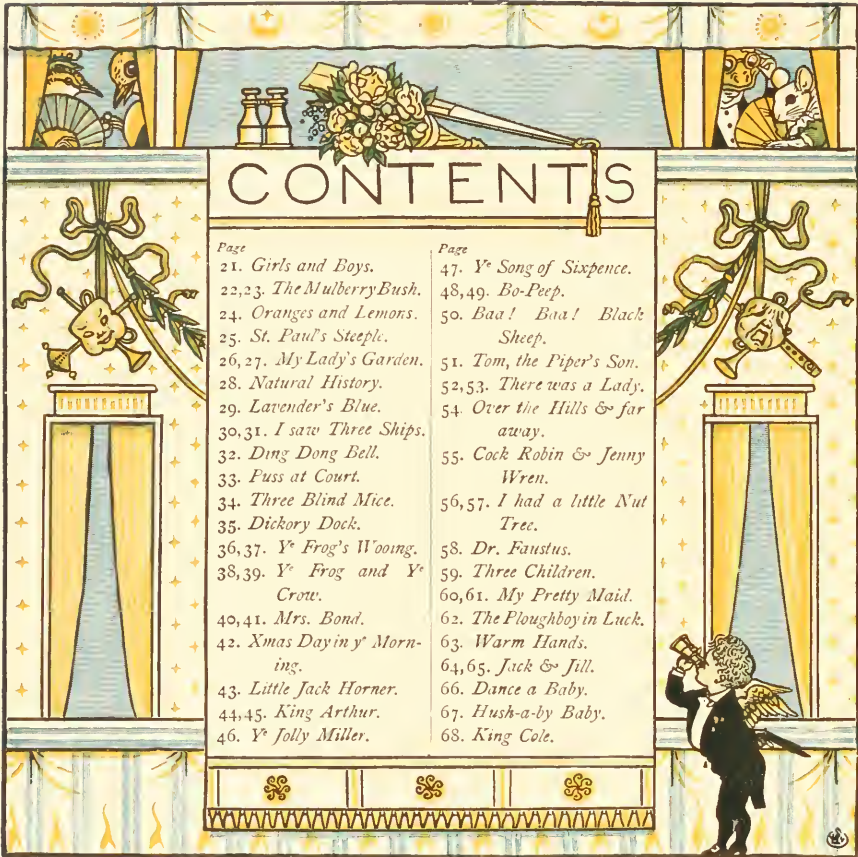 CONTENTS
Page
21. Girls and Boys.
22,23. The Mulberry Bush.
24. Oranges and Lemons.
25. St. Paul's Steeple.
26,27. My Lady's Garden.
28. Natural History.
29. Lavender's Blue.
30,31. I saw Three Ships.
32. Ding Dong Bell.
33. Puss at Court.
34. Three Blind Mice.
35. Dickory Dock.
36,37. Yᵉ Frog's Wooing.
38,39. Yᵉ Frog and Yᵉ
Crow.
40,41. Mrs. Bond.
42. Xmas Day in yᵉ Morn-
ing.
43. Little Jack Horner.
44,45. King Arthur.
46. Yᵉ Jolly Miller.
Page
47. Yᵉ Song of Sixpence.
48,49. Bo-Peep.
50. Baa! Baa! Black
Sheep.
51. Tom, the Piper's Son.
52,53. There was a Lady.
54. Over the Hills & far
away.
55. Cock Robin & Jenny
Wren.
56,57. I had a little Nut
Tree.
58. Dr. Faustus.
59. Three Children.
60,61. My Pretty Maid.
62. The Ploughboy in Luck.
63. Warm Hands.
64,65. Jack & Jill.
66. Dance a Baby.
67. Hush-a-by Baby.
68. King Cole.